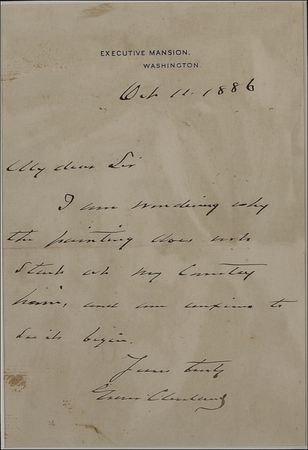 EXECUTIVE MANSION.
WASHINGTON.
Oct 11. 1886
My dear Sir
I am wondering why
the painting does not
start at my Country
and am anxious to
see it begin.
Yours truly
Grover Cleveland